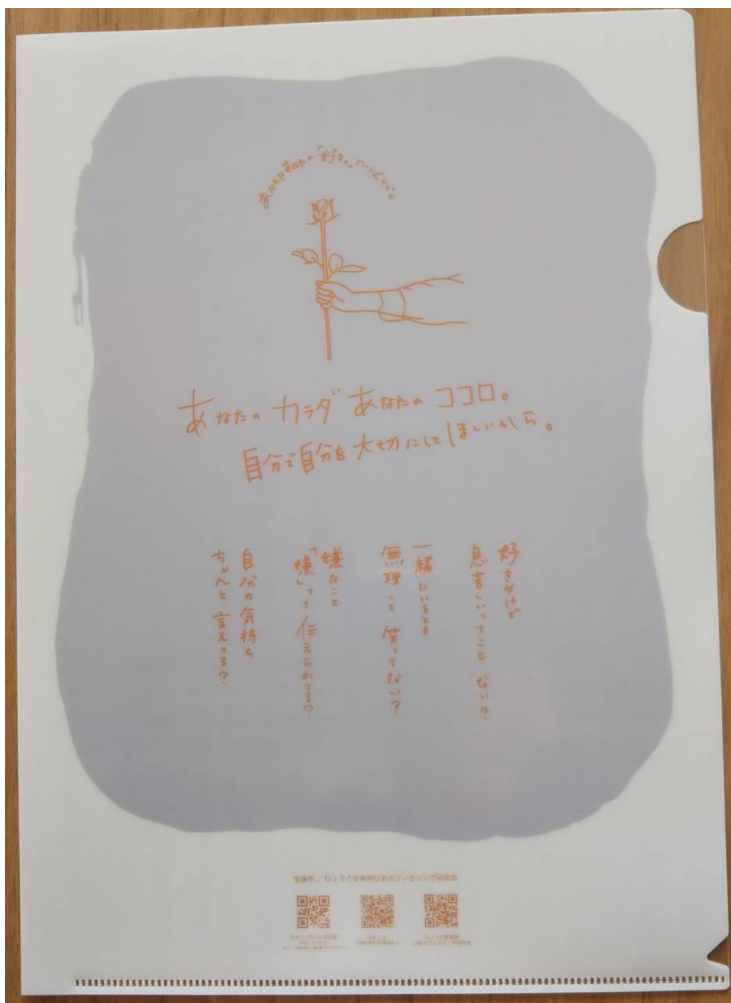 あなたはあなたの「好き」で
あなたのカラダ あなたのココロ。
自分で自分を大切にしてほしいから。
好きだけど
息苦しいってこと ない？
一緒にいるとき
無理して 笑ってない？
嫌なこと
「嫌」って 伝えられてる？
自分の気持ち
ちゃんと 言えてる？
宝塚市／ひょうご思春期ぴあカウンセリング研究会